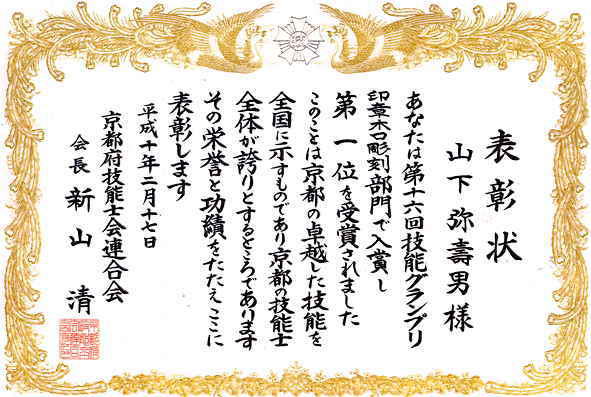 表彰状
山下弥壽男様
あなたは第十六回技能グランプリ
印章木口彫刻部門で入賞し
第一位を受賞されました
このことは京都の卓越した技能を
全国に示すものであり京都の技能士
全体が誇りとするところであります
その栄誉と功績をたたえここに
表彰します
平成十年二月十七日
京都府技能士会連合会
会長 新山 清